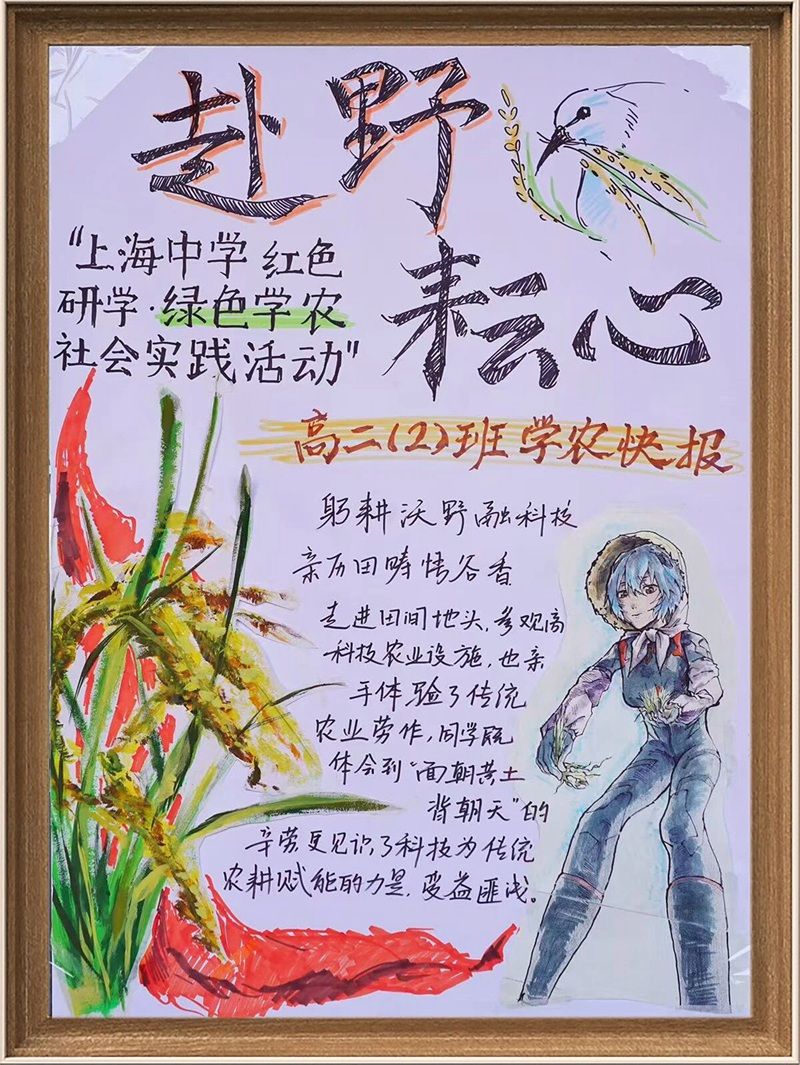 赴野
耘心
“上海中学 红色
研学·绿色学农
社会实践活动”
高二(2)班学农快报
躬耕沃野融科技
亲历田畴悟谷香
走进田间地头,参观高
科技农业设施,也亲
手体验了传统
农业劳作,同学既
体会到“面朝黄土
背朝天”的
辛劳更见识了科技为传统
农耕赋能的力量,受益匪浅。